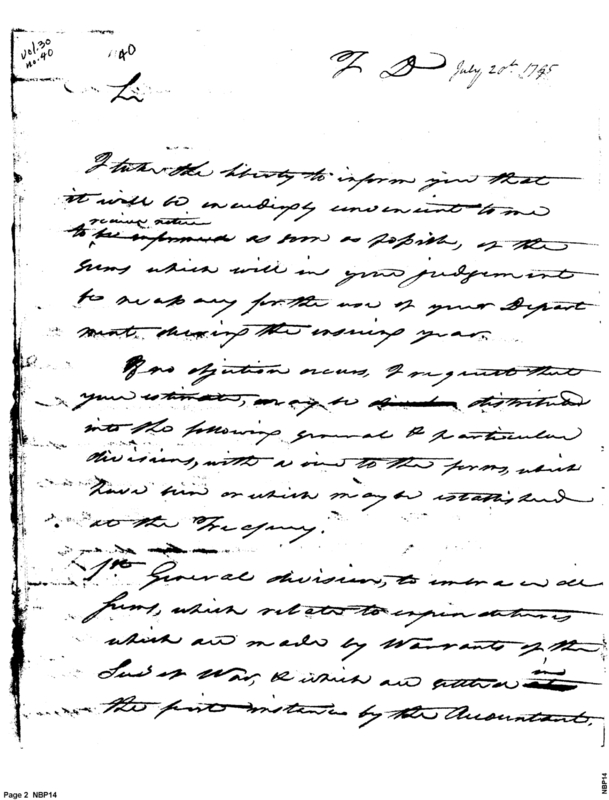 vol. 30
no. 40
40
T D July 20th. 1795
Sir
I take the liberty to inform you that
it will be exceedingly convenient to me
receive notice
to be informed as soon as possible, of the
sums which will in your judgement
be necessary for the use of your Depart
ment during the ensuing year.
If no objection occurs, I request that
your estimate, may be distributed
into the following general & particular
divisions, with a view to the forms, which
have been or which may be established
at the Treasury.
1st General division, to embrace all
sums, which relate to expenditures
which are made by Warrants of the
Secy of War, & which are settled in
the first instance by the Accountant.
Page 2 NBP14
NBP14